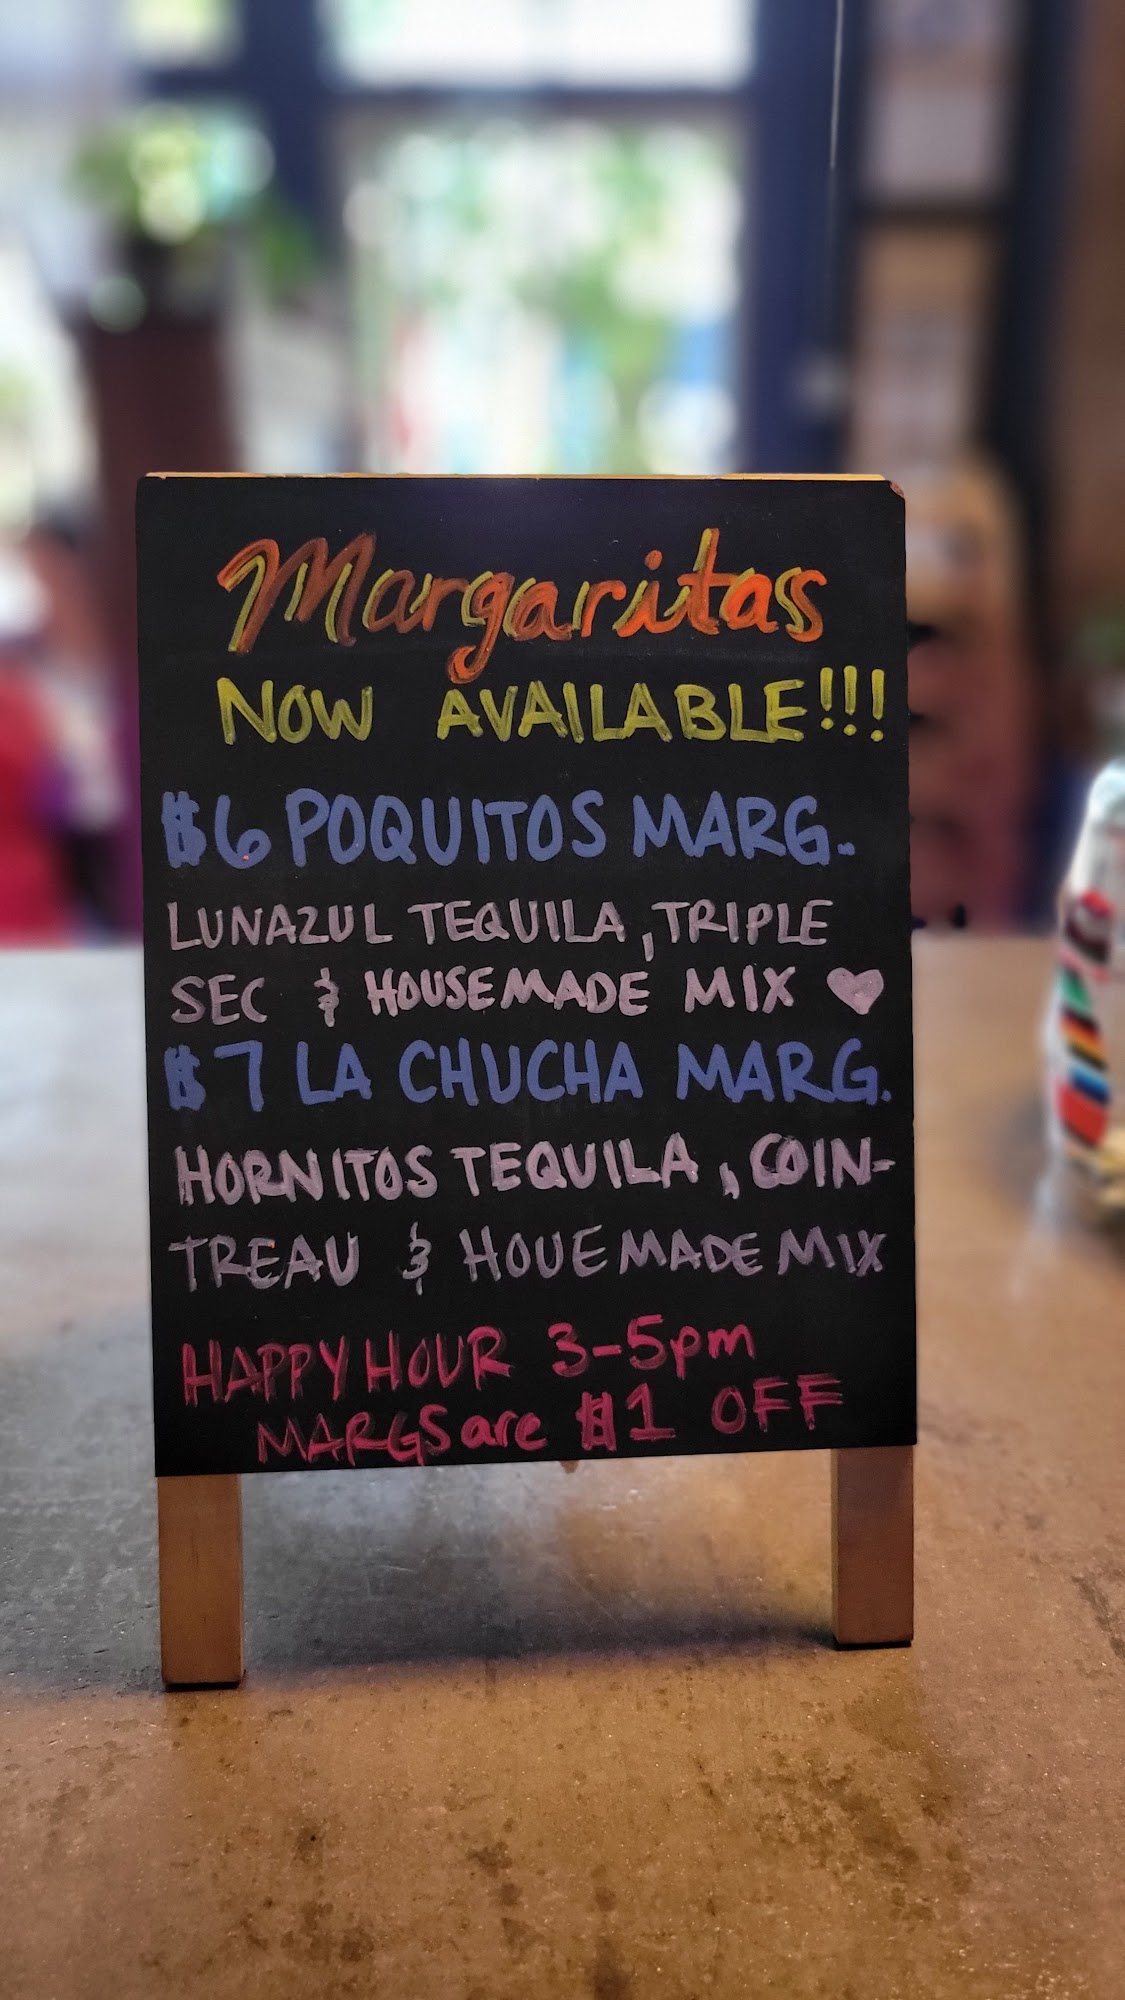 Margaritas
NOW AVAILABLE!!!
$6 POQUITOS MARG.
LUNAZUL TEQUILA, TRIPLE
SEC & HOUSEMADE MIX ♥
$7 LA CHUCHA MARG.
HORNITOS TEQUILA, COIN-
TREAU & HOUEMADE MIX
HAPPY HOUR 3-5pm
MARGS are $1 OFF